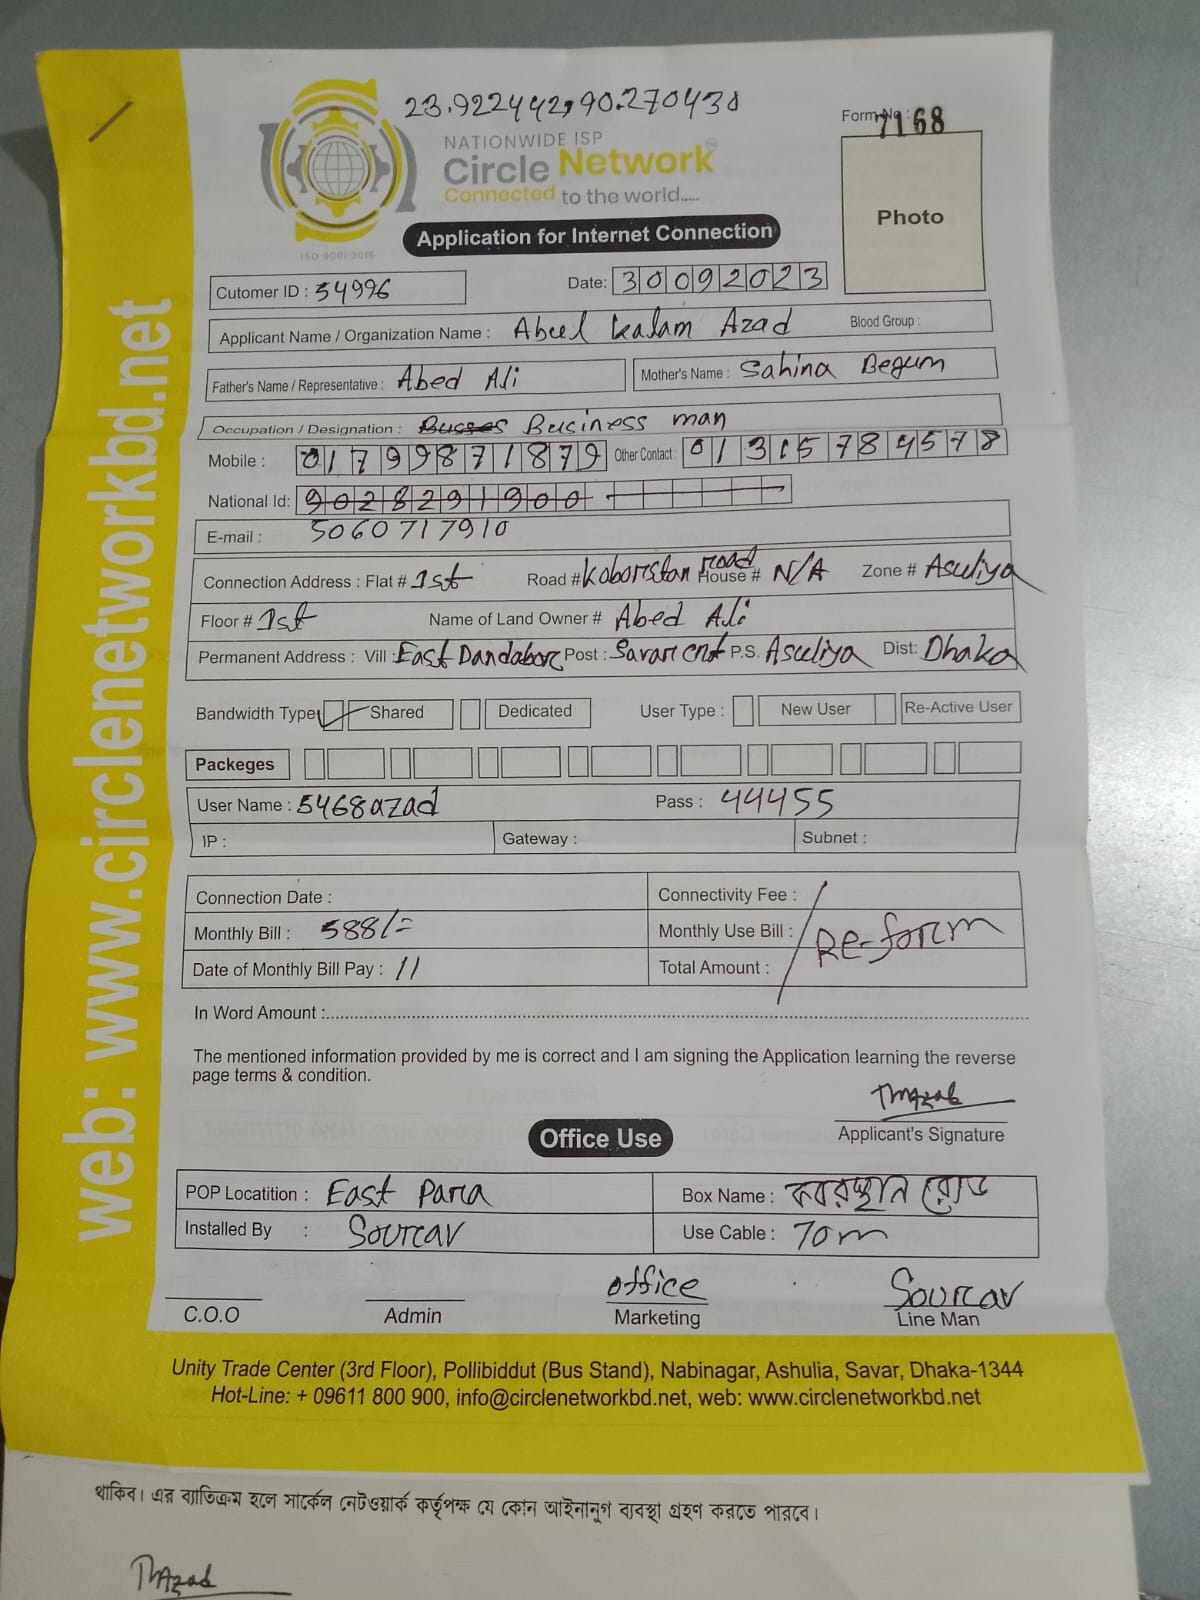 23.922442, 90.270438
Form No : 7168
NATIONWIDE ISP
Circle Network
Connected to the world.....
ISO 9001:2015
Application for Internet Connection
Photo
Cutomer ID : 54996
Date: 30092023
Applicant Name / Organization Name : Abul kalam Azad Blood Group :
Father's Name / Representative : Abed Ali Mother's Name : Sahina Begum
Occupation / Designation : Business man
Mobile : 01799871879 Other Contact : 01315784578
National Id: 9028291900
E-mail : 5060717910
Connection Address : Flat # 1st Road # Koborstan road House # N/A Zone # Asuliya
Floor # 1st Name of Land Owner # Abed Ali
Permanent Address : Vill : East Dandabor Post : Savar cnt P.S. Asuliya Dist: Dhaka
Bandwidth Type Shared Dedicated User Type : New User Re-Active User
Packeges
User Name : 5468azad Pass : 44455
IP : Gateway : Subnet :
Connection Date : Connectivity Fee :
Monthly Bill : 588/= Monthly Use Bill : Re-form
Date of Monthly Bill Pay : 11 Total Amount :
In Word Amount :
The mentioned information provided by me is correct and I am signing the Application learning the reverse
page terms & condition.
Applicant's Signature
Office Use
POP Locatition : East Para Box Name : কবরস্থান রোড
Installed By : Sourav Use Cable : 70m
office Sourav
C.O.O Admin Marketing Line Man
Unity Trade Center (3rd Floor), Pollibiddut (Bus Stand), Nabinagar, Ashulia, Savar, Dhaka-1344
Hot-Line: + 09611 800 900, info@circlenetworkbd.net, web: www.circlenetworkbd.net
web: www.circlenetworkbd.net
থাকিব। এর ব্যাতিক্রম হলে সার্কেল নেটওয়ার্ক কর্তৃপক্ষ যে কোন আইনানুগ ব্যবস্থা গ্রহণ করতে পারবে।